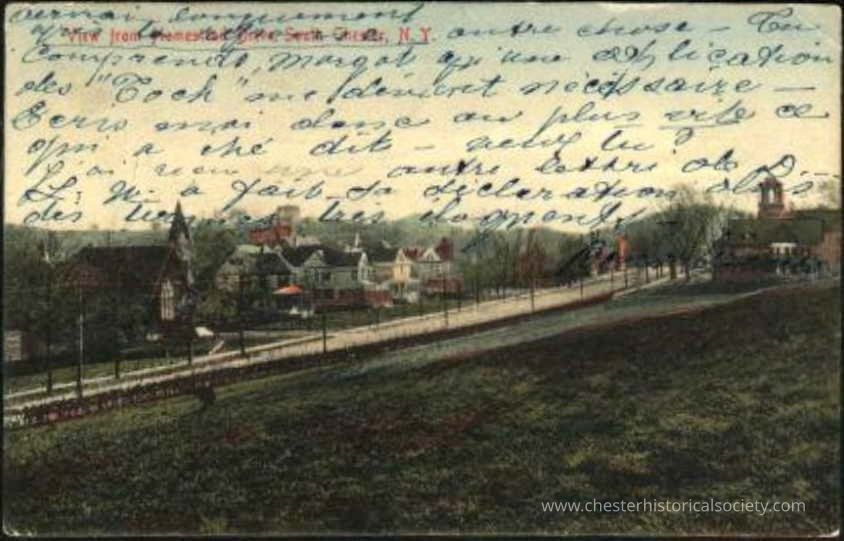 longuement
View from Homestead South Chester, N.Y.
autre chose - Tu
Comprends, Margot qu'une explication
des "Toch" me devient nécessaire -
Ecris moi donc au plus vite ce
qui a été dit - veux tu?
J'ai rien autre lettre de D.
L. N. a fait sa déclaration dans
des termes très éloquents
www.chesterhistoricalsociety.com